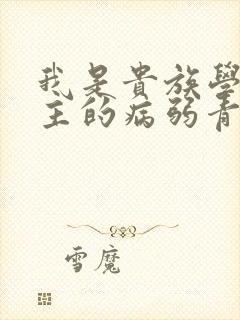 我是貴族學
主的病弱青
雪魔